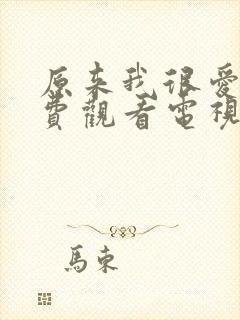 原来我很爱
費觀看電視
馬東